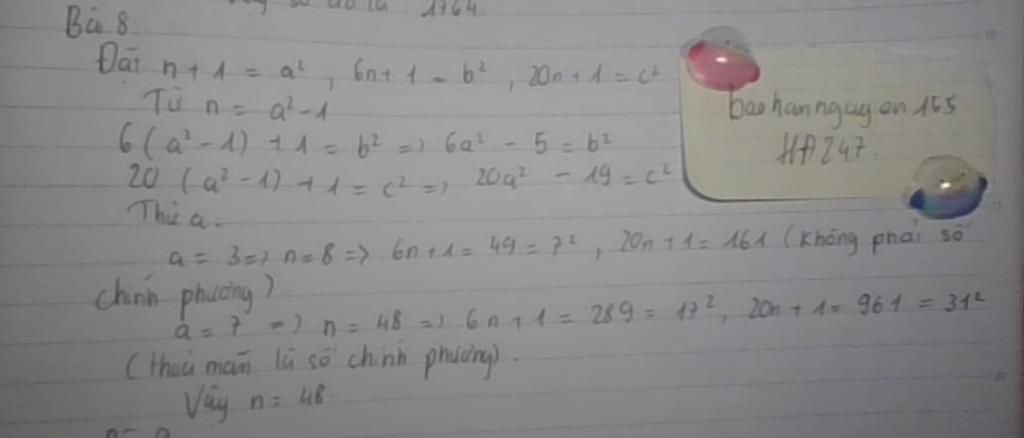 số đó là 1764
Bài 8:
Đặt n + 1 = a² , 6n + 1 = b² , 20n + 1 = c²
Từ n = a² - 1
6 (a² - 1) + 1 = b² => 6a² - 5 = b²
20 (a² - 1) + 1 = c² => 20a² - 19 = c²
Thử a.
a = 3 => n = 8 => 6n + 1 = 49 = 7² , 20n + 1 = 161 (không phải số
chính phương)
a = 7 => n = 48 => 6n + 1 = 289 = 17² , 20n + 1 = 961 = 31²
(thoả mãn là số chính phương).
Vậy n = 48
baohannguyen165
HA247